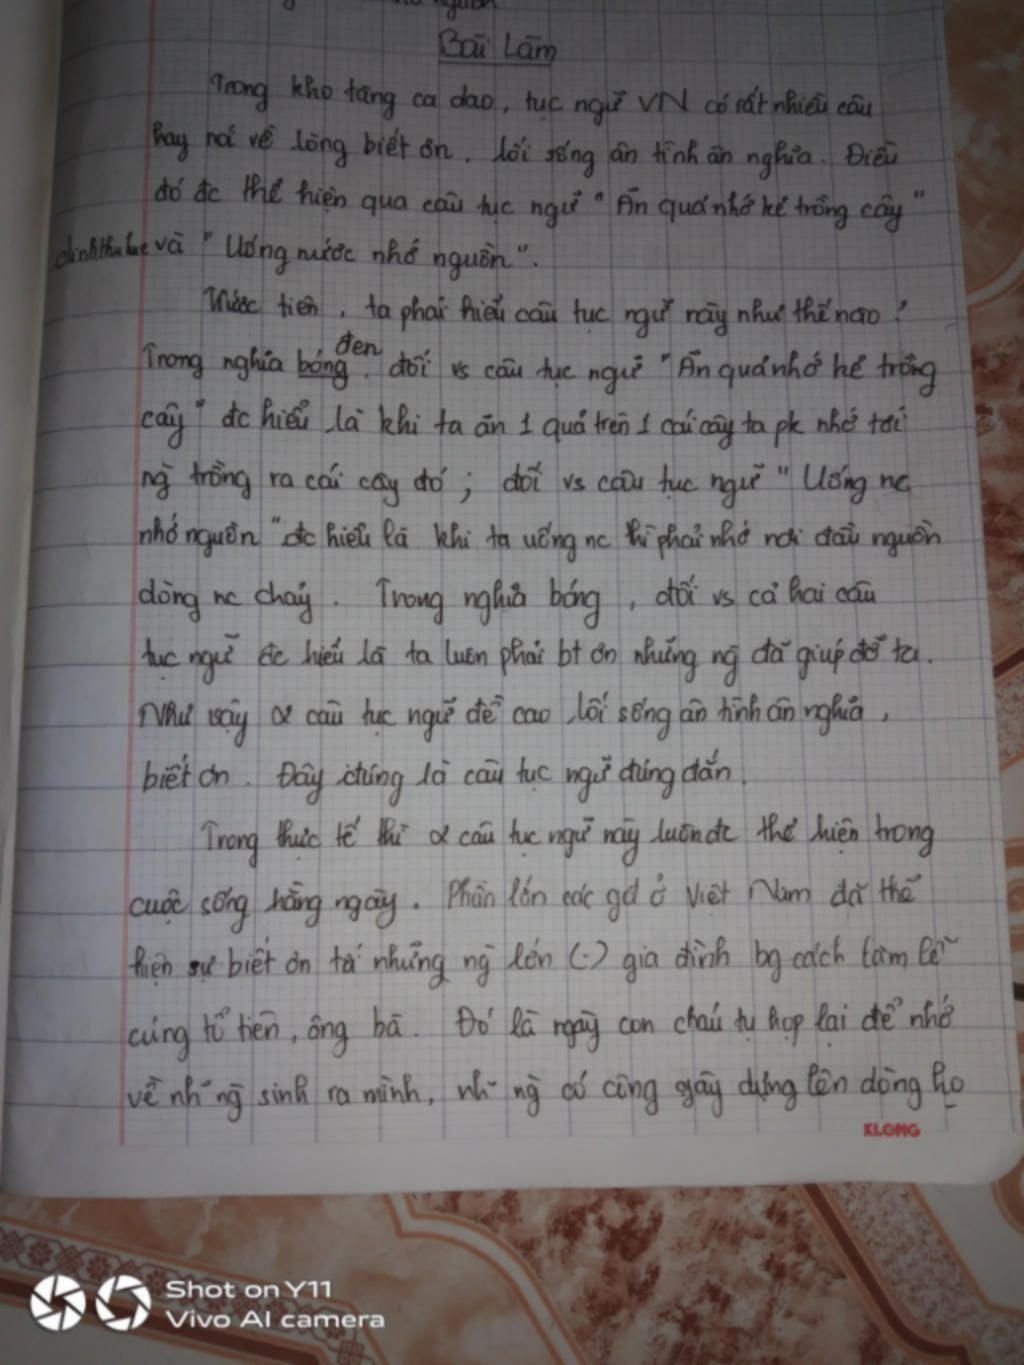 nguồn
Bài Làm
Trong kho tàng ca dao, tục ngữ VN có rất nhiều câu
hay nói về lòng biết ơn, lối sống ân tình ân nghĩa. Điều
đó đc thể hiện qua câu tục ngữ " Ăn quả nhớ kẻ trồng cây "
và " Uống nước nhớ nguồn ".
Trước tiên, ta phải hiểu câu tục ngữ này như thế nào ?
đen
Trong nghĩa bóng, đối vs câu tục ngữ " Ăn quả nhớ kẻ trồng
cây " đc hiểu là khi ta ăn 1 quả trên 1 cái cây ta pk nhớ tới
ng̀ trồng ra cái cây đó ; đối vs câu tục ngữ " Uống nc
nhớ nguồn " đc hiểu là khi ta uống nc thì phải nhớ nơi đầu nguồn
dòng nc chảy. Trong nghĩa bóng, đối vs cả hai câu
tục ngữ đc hiểu là ta luôn phải bt ơn những ng̀ đã giúp đỡ ta.
Như vậy 2 câu tục ngữ đề cao lối sống ân tình ân nghĩa,
biết ơn. Đây chúng là câu tục ngữ đúng đắn.
Trong thực tế thì 2 câu tục ngữ này luôn đc thể hiện trong
cuộc sống hằng ngày. Phần lớn các gđ ở Việt Nam đã thể
hiện sự biết ơn tới những ng̀ lớn (-) gia đình bg cách làm lễ
cúng tổ tiên, ông bà. Đó là ngày con cháu tụ họp lại để nhớ
về nh~ ng̀ sinh ra mình, nh~ ng̀ có công gây dựng lên dòng họ
KLONG
Shot on Y11
Vivo AI camera